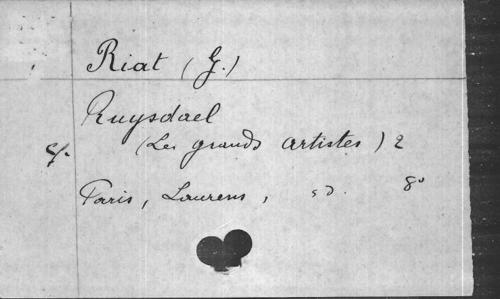 Riat (G.)
Ruysdael
(Les grands artistes) 2
Paris, Laurens, s d. 8°